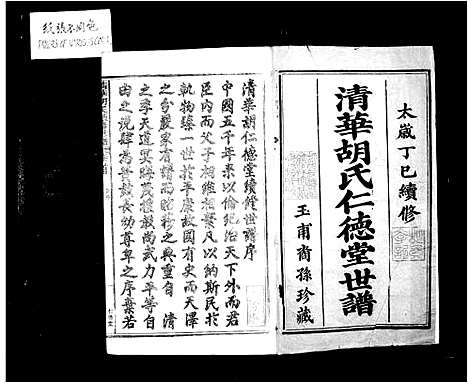 紙張不同色
太歲丁巳續修
清華胡氏仁德堂世譜
玉甫裔孫珍藏
清華胡仁德堂續修世譜序
中國五千年來以倫紀治天下外而君
臣內而父子相維相繫凡以納斯民於
軌物焉耳有國則有史而天澤
之分嚴家有譜而昭穆之典重自清
之季天道冥晦黃教尚武力平等自
由之說肆為鼓簧長幼尊卑之序棄若